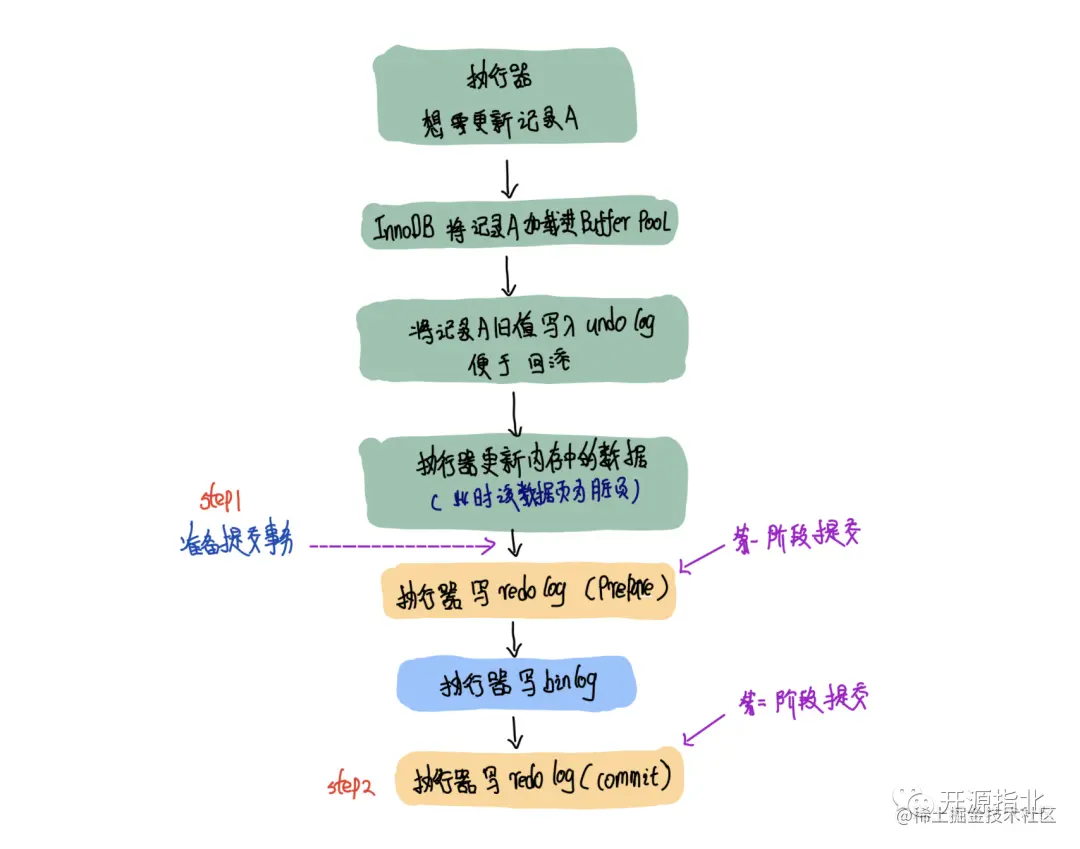 执行器
想要更新记录A
InnoDB 将记录A加载进Buffer Pool
将记录A旧值写入 undo log
便于 回滚
执行器更新内存中的数据
(此时该数据页为脏页)
step1
准备提交事务
第一阶段提交
执行器 写 redo log (Prepare)
执行器 写 binlog
第二阶段提交
执行器 写 redo log (commit)
step2
开源指北
@稀土掘金技术社区